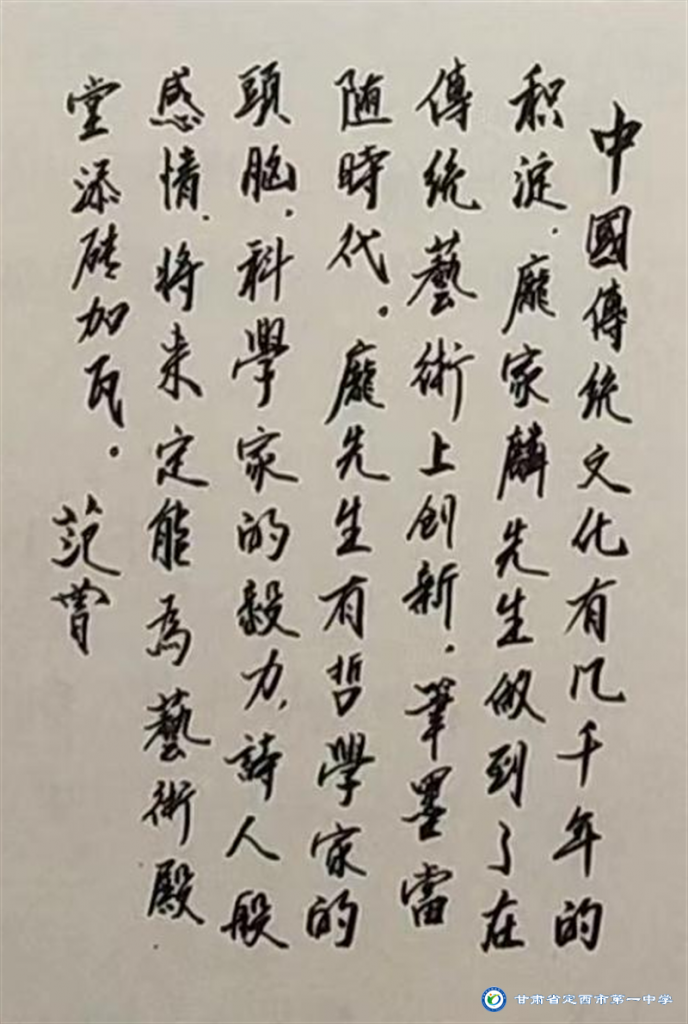 中國傳統文化有几千年的
积淀.龐家麟先生做到了在
傳統藝術上创新.筆墨當
随時代。龐先生有哲學家的
頭脑.科學家的毅力,詩人般
感情,将来定能為藝術殿
堂添砖加瓦。范曾
甘肃省定西市第一中学